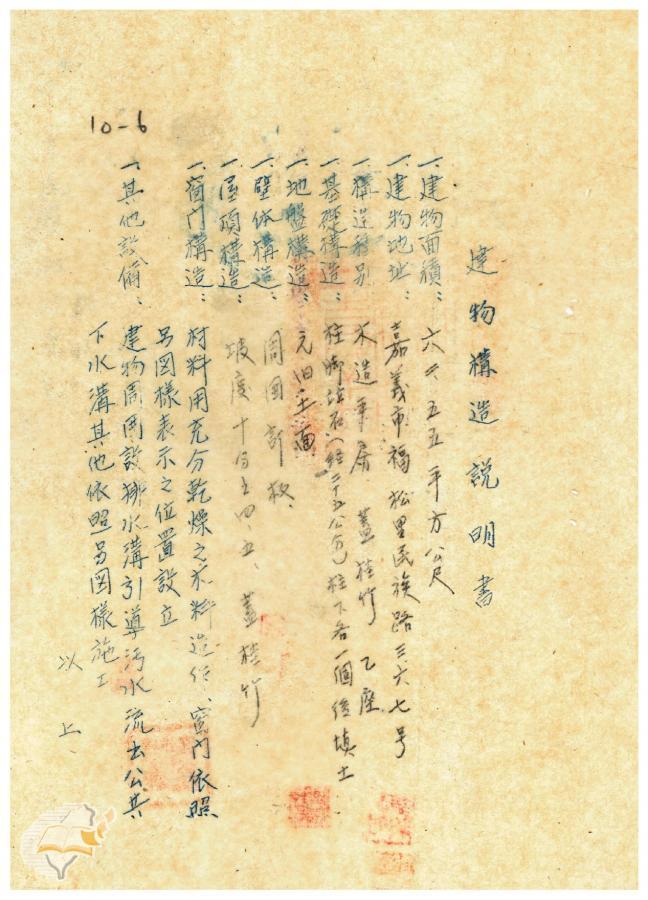 建物構造説明書
一、建物面積：六六、五五平方公尺
一、建物地址：嘉義市福松里民族路三六七号
一、構造種別 木造平屋 蓋桂竹 乙座
一、基礎構造：柱脚塊石(経二十五公分)柱下各一個经填土
一、地盤構造：元旧土面
一、壁体構造：周囲訂板、
一、屋頂構造：坡度十分之四、五、蓋桂竹
一、窗门構造：材料用充分乾燥之木料造作、窗门依照
另図樣表示之位置設立
一、其他設備：建物周囲設排水溝引導污水流去公共
下水溝其他依照另図樣施工
以上、
10-6